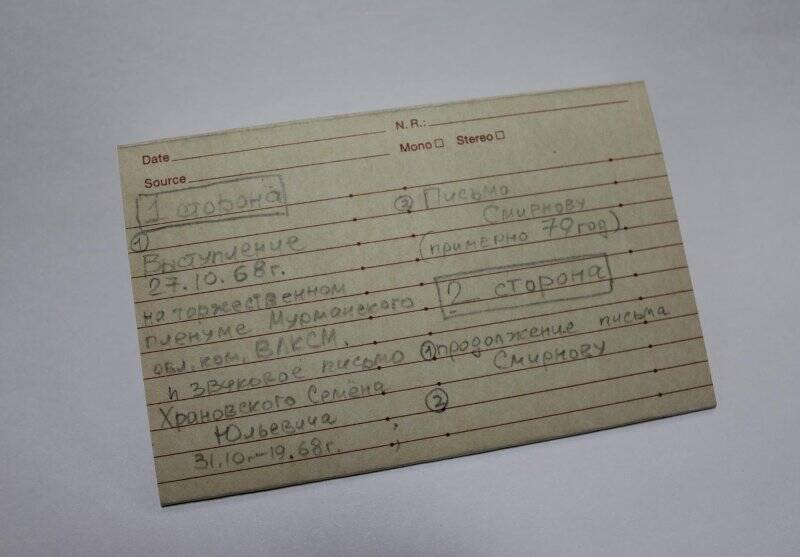 Date
Source
N. R.:
Mono Stereo
1 сторона
①
Выступление
27.10.68г.
на торжественном
пленуме Мурманского
обл. ком. ВЛКСМ,
и звуковое письмо
Храновского Семёна
Юльевича
31.10.-19.68г.
② Письмо
Смирнову
(примерно 79 год).
2 сторона
① продолжение письма
Смирнову
②